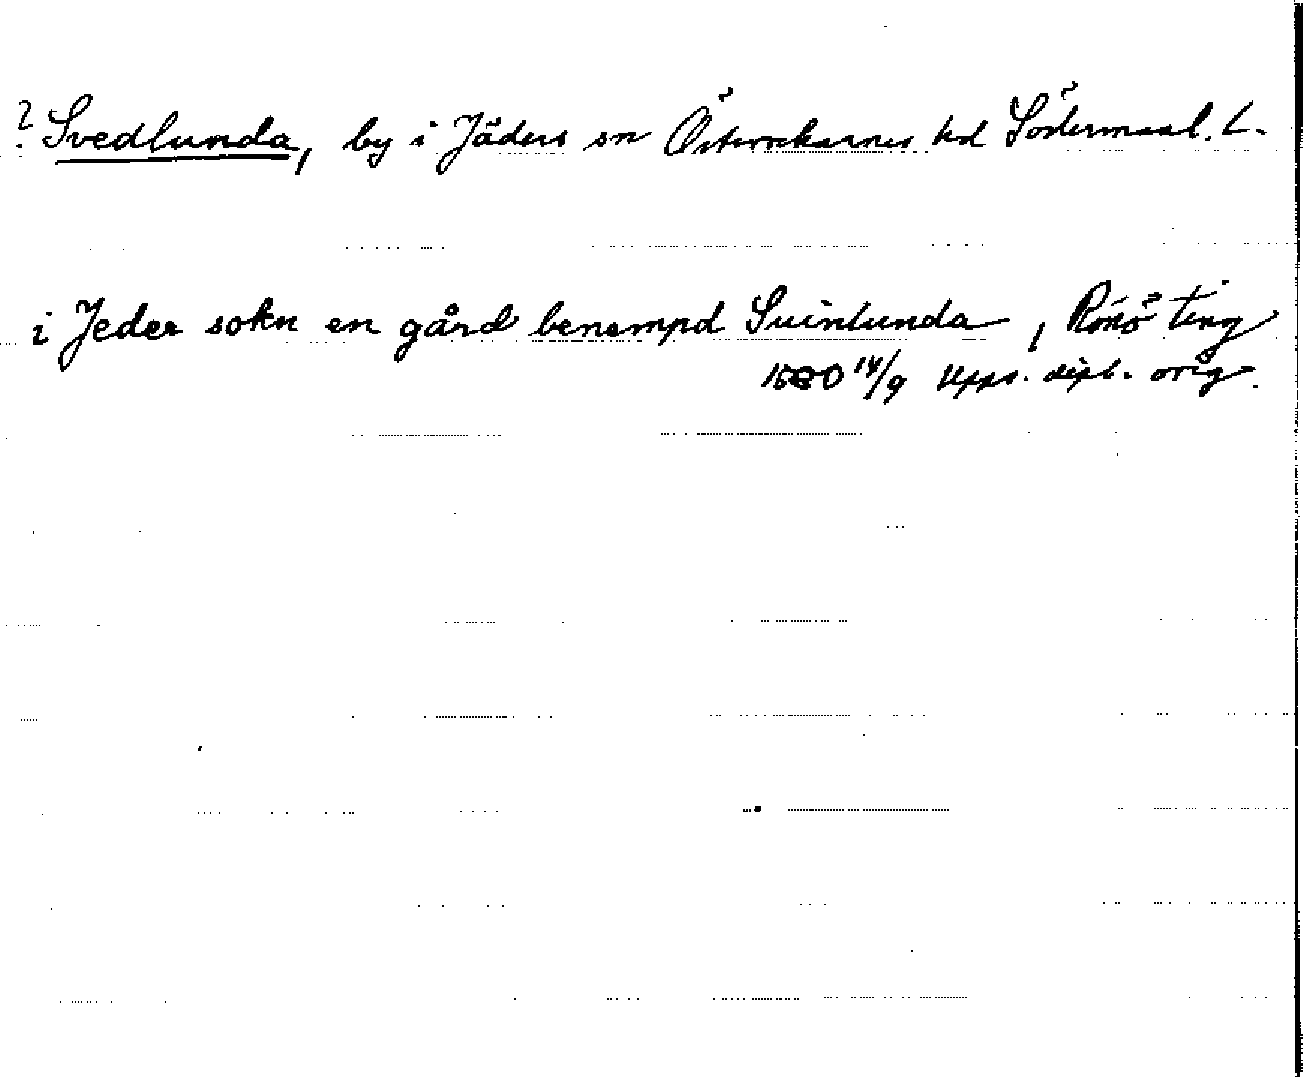 ? Svedlunda, by i Jäders sn Österrekarnes hd Södermanl. L.
i Jeder sokn en gård benempd Suinlunda, Rönö ting
14/9 Upps. dipl. orig.